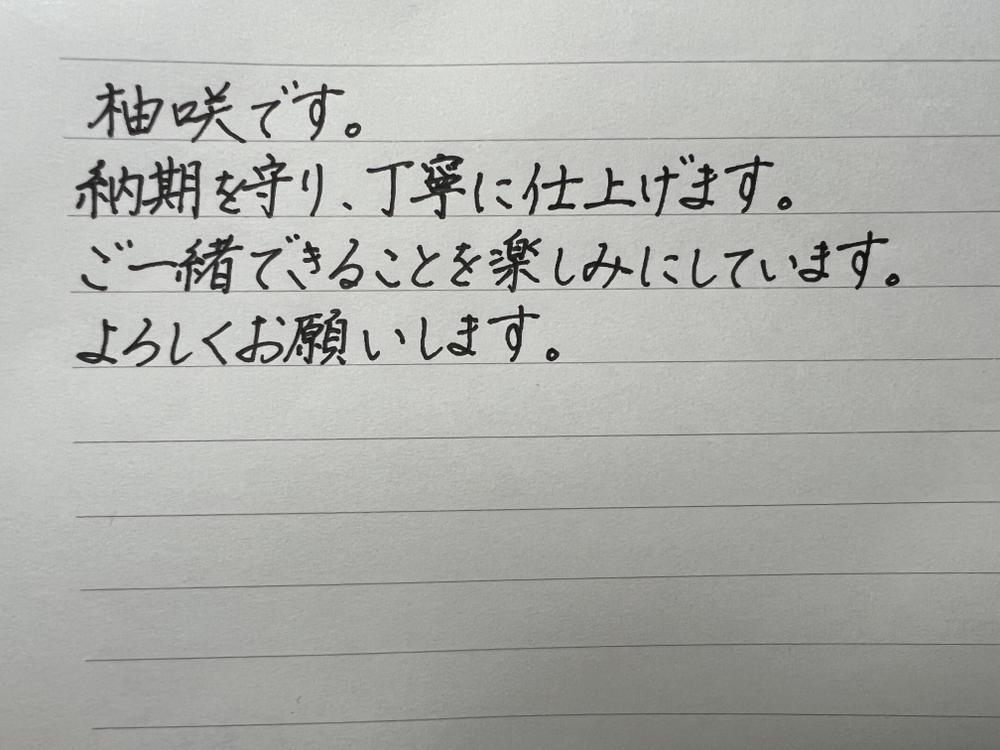 柚咲です。
納期を守り、丁寧に仕上げます。
ご一緒できることを楽しみにしています。
よろしくお願いします。